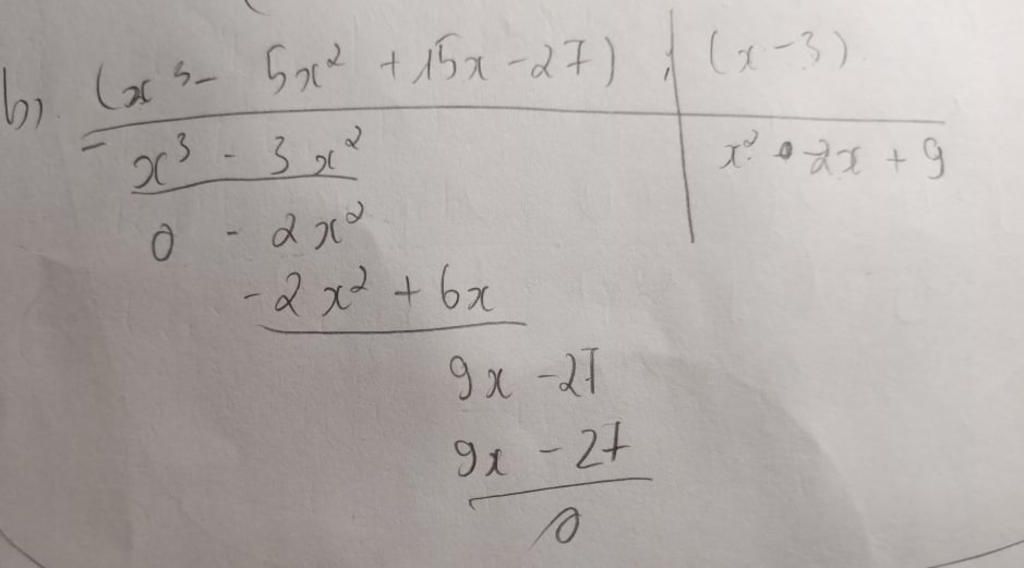 b) (x³ - 5x² + 15x - 27) : (x - 3)
- x³ - 3x² x² - 2x + 9
0 - 2x²
- 2x² + 6x
9x - 27
9x - 27
0